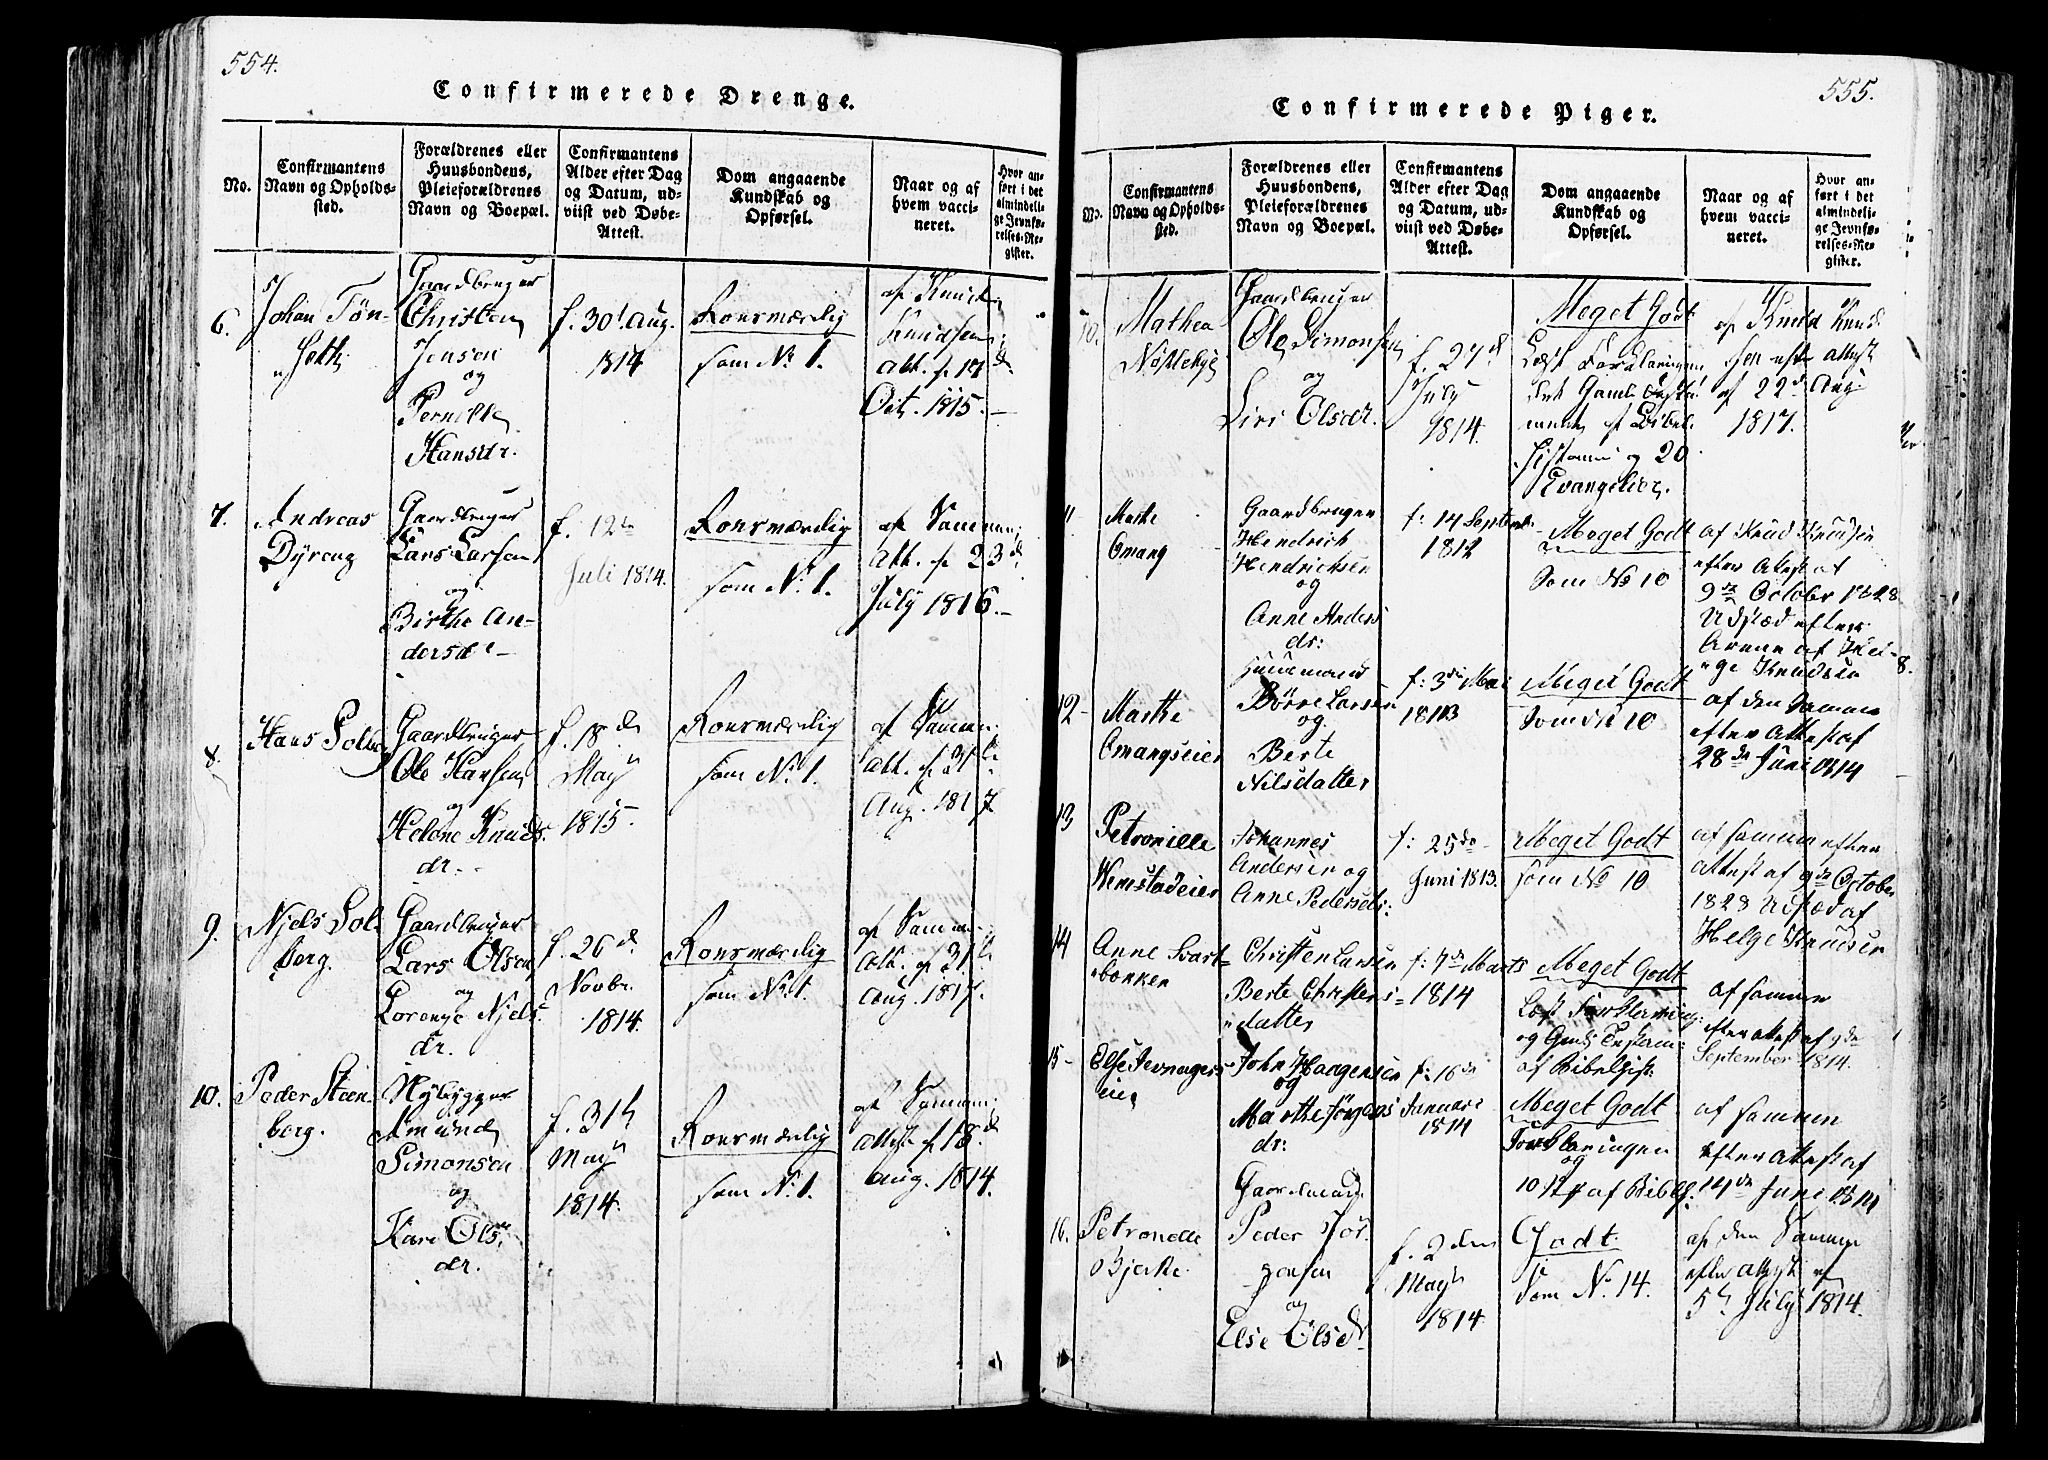 554.
Confirmerede Drenge.
No.
Confirmantens
Navn og Opholds-
sted.
Forældrenes eller
Huusbondens,
Pleieforældrenes
Navn og Boepæl.
Confirmantens
Alder efter Dag
og Datum, ud-
viist ved Døbe-
Attest.
Dom angaaende
Kundskab og
Opførsel.
Naar og af
hvem vacci-
neret.
Hvor an-
ført i det
almindeli-
ge Jevnfø-
relses-Re-
gister.
6.
Johan Tøn-
seth
Gaardbruger
Christen
Jensen
og
Pernille
Hansdr.
f. 30t Aug.
1814
Roesværdig
som No 1.
af Knud
Knudsen
Att. af 17 d
Oct. 1815.
7.
Andreas
Dyreng
Gaardbruger
Lars Larsen
og
Birthe An-
dersdr
f. 12te
Juli 1814.
Roesværdig
som No 1.
af Samme,
Att. af 23 d
July 1816.
8.
Hans Solberg
Gaardbruger
Ole Hansen
og
Helene Knuds
dr.
f. 18 de
May
1815
Roesværdig
som No 1.
af Samme
Att. af 31te
Aug. 1817.
9.
Njels Sol-
berg.
Gaardbruger
Lars Olsen
og
Lorenze Njels
dr.
f. 26 d
Novbr.
1814.
Roesværdig
som No 1.
af Samme
Att. af 31te
Aug. 1817.
10.
Peder Steen
berg.
Nybygger
Amund
Simonsen
og
Kari Ols
dr.
f. 31te
May
1814.
Roesværdig
som No 1.
af Samme
Attest af 18 d
Aug. 1814.
555.
Confirmerede Piger.
No.
Confirmantens
Navn og Opholds-
sted.
Forældrenes eller
Huusbondens,
Pleieforældrenes
Navn og Boepæl.
Confirmantens
Alder efter Dag
og Datum, ud-
viist ved Døbe-
Attest.
Dom angaaende
Kundskab og
Opførsel.
Naar og af
hvem vacci-
neret.
Hvor an-
ført i det
almindeli-
ge Jevnfø-
relses-Re-
gister.
10.
Mathea
Gaardbruger
Ole Simonsen
og
Siri Olsdr.
f. 27 d
July
1814.
Meget Godt
Læst Forklaringen
det Gamle Testa-
mente af Bibel-
Historien og 20
Evangelier.
af Knud Knud
sen efter Attest
af 22 d Aug
1817.
11
Marthe
Omang
Gaardbruger
Hendrich
Hendrichsen
og
Anne Anders
ds:
f: 14 Septembr
1812
Meget Godt
Som No 10
af Knud Knudsen
efter Attest af
9de October 1828
Udstæd efter
Arven af Hel-
ge Knudsen
8.
12
Marthe
Omangseier
Huusmand
Børre Larsen
og
Berte
Nilsdatter
f: 3die Mai
1813
Meget Godt
Som No 10
af den Samme
efter Attest af
28de Juni 1814
13
Petronille
Wemstadeier
Johannes
Andersen og
Anne Pedersds:
f: 25de
Juni 1813.
Meget Godt
som No 10
af samme efter
Attest af 9de October
1828 Udstæd af
Helge Knudsen
14
Anne Svart-
bønken
Christen Larsen
Berte Christens
datter
f: 7de Marts
1814
Meget Godt
Læst Forklaring
og Gamle Testam:
af Bibelhist:
af samme
efter Attest af 9de
September 1814.
15
Else Jevnager
eie
John Haagensen
og
Marthe Jørgens
ds:
f: 16de
Januari
1814
Meget Godt
Forklaringen
og
af Bibelh.
af samme
efter Attest af
14de Juni 1814
16.
Petronelle
Bjerke
Gaardmand
Peder Jør
gensen
og
Else Olsdr
f. 2den
May
1814
Godt
Som No. 14.
af den Samme
efter Attest af
5te July 1814.